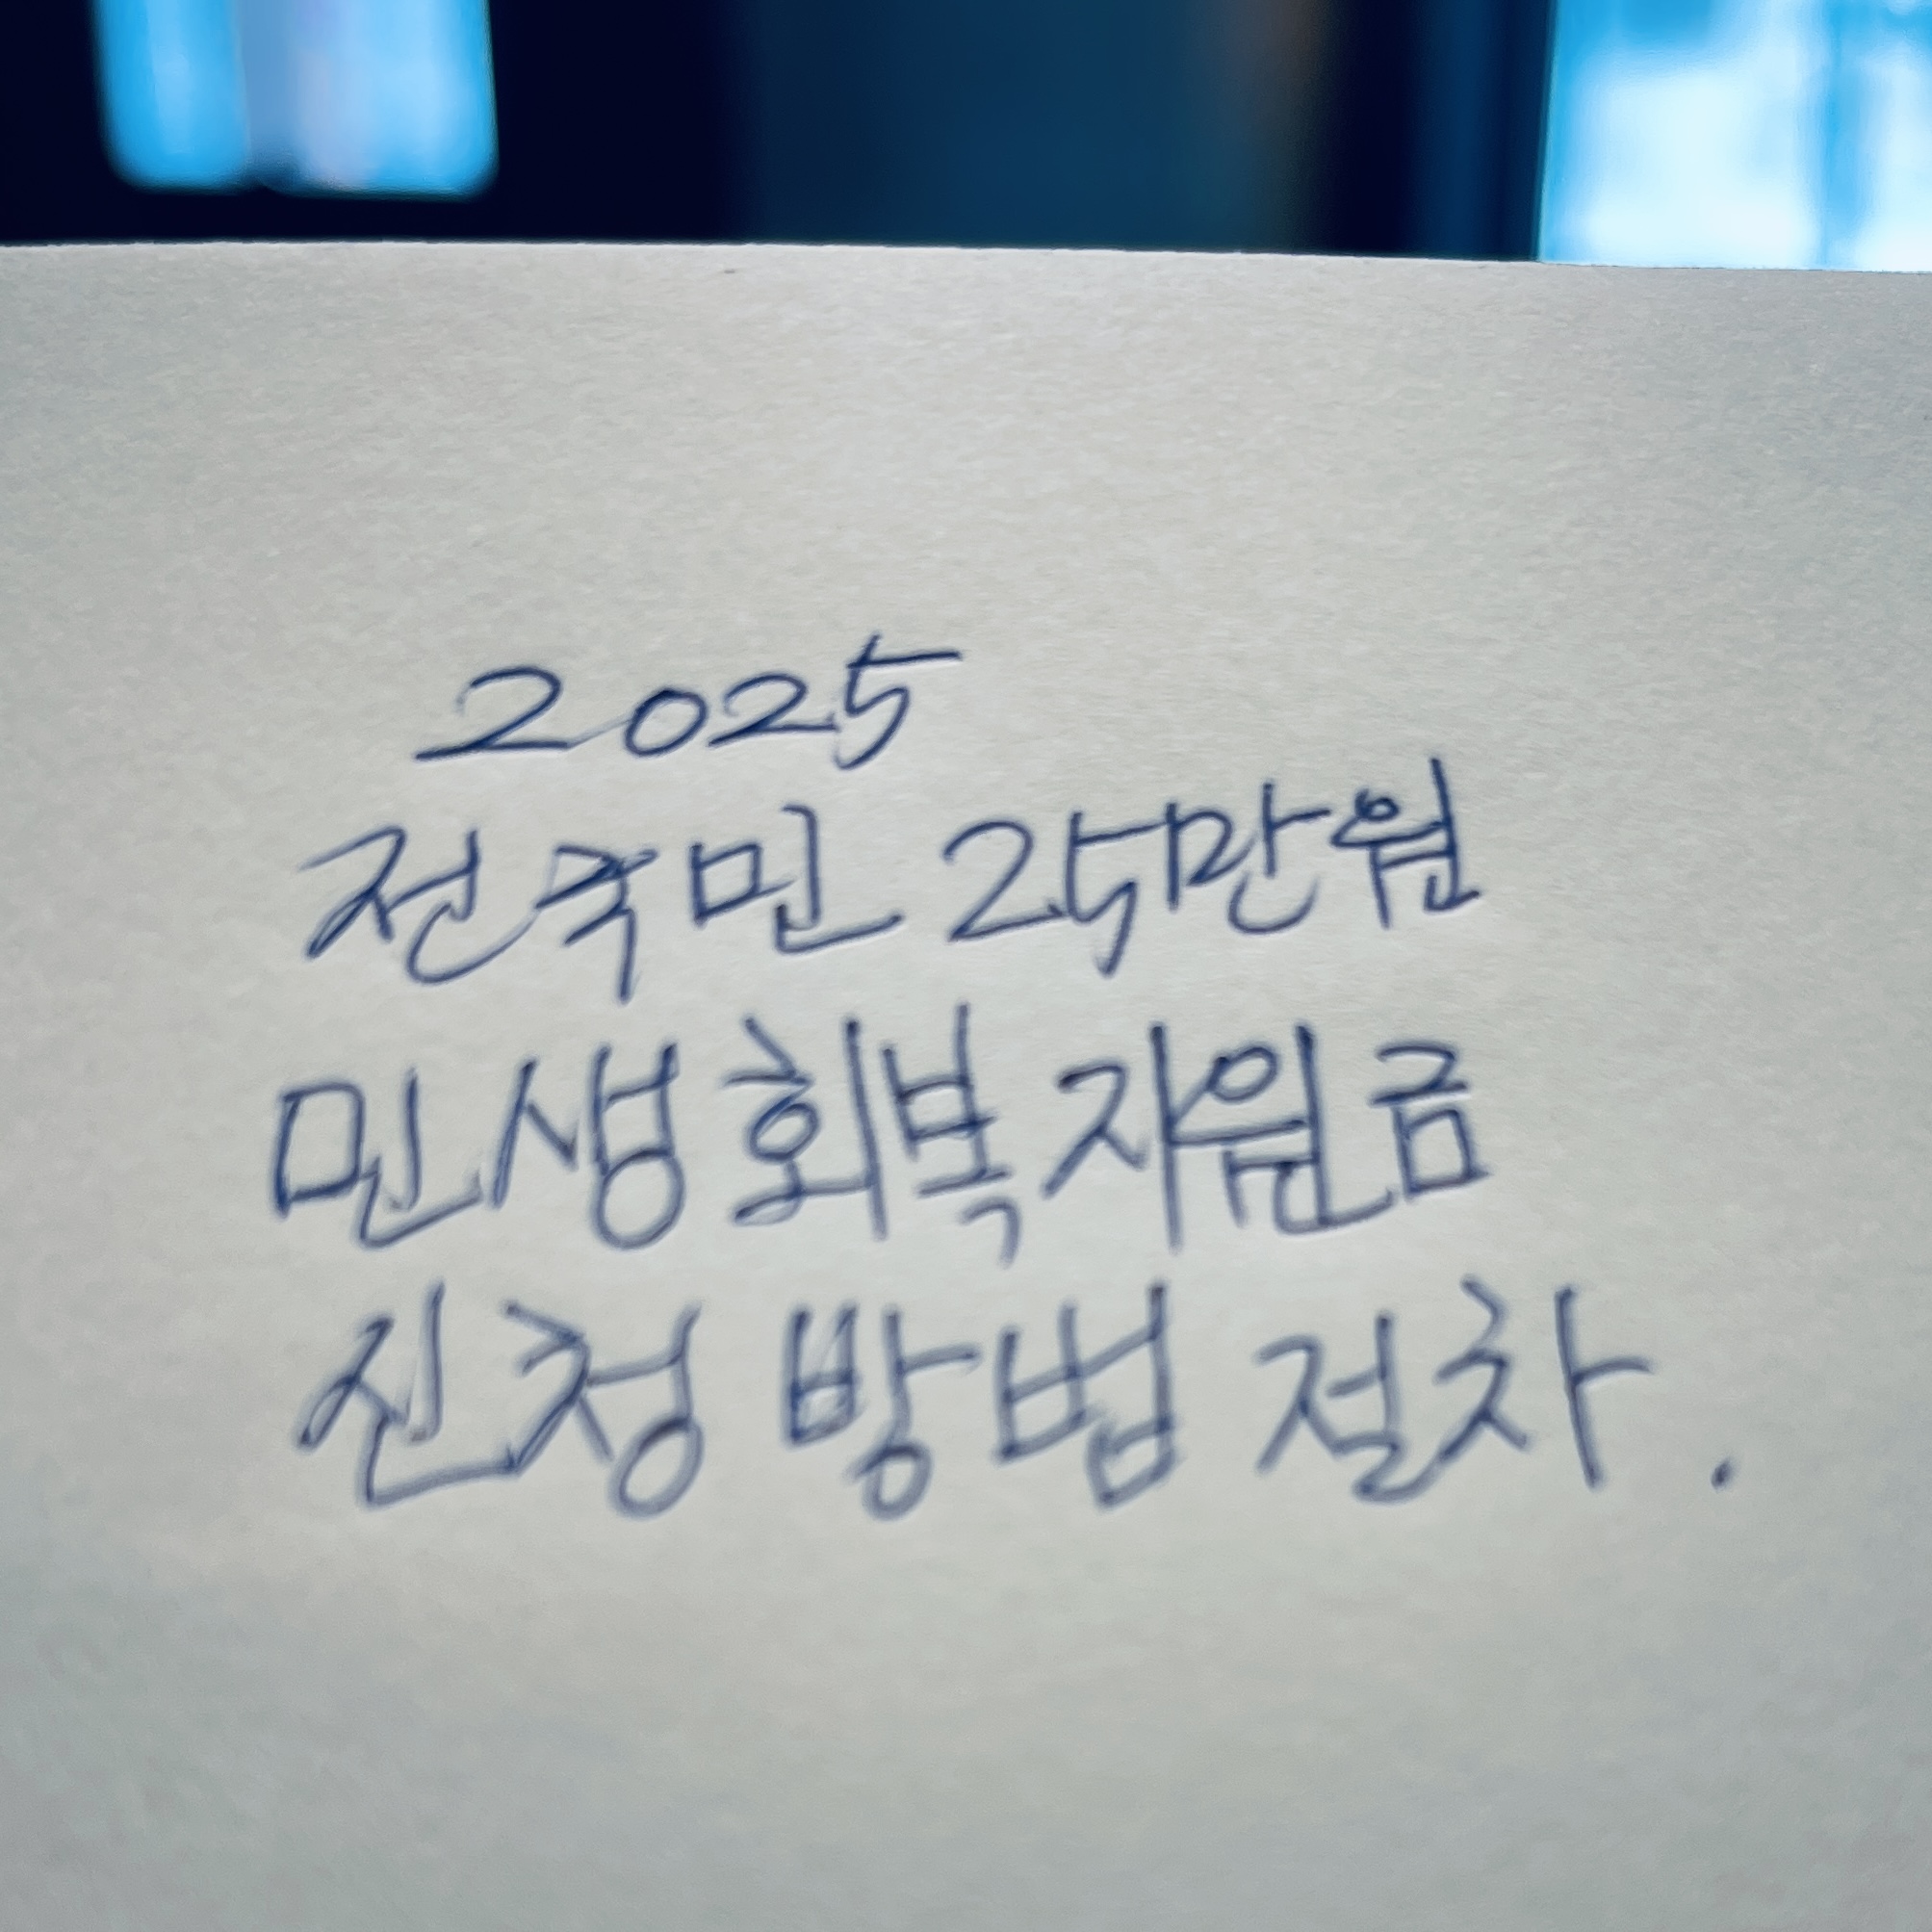 2025
전국민 25만원
민생회복지원금
신청 방법 절차.